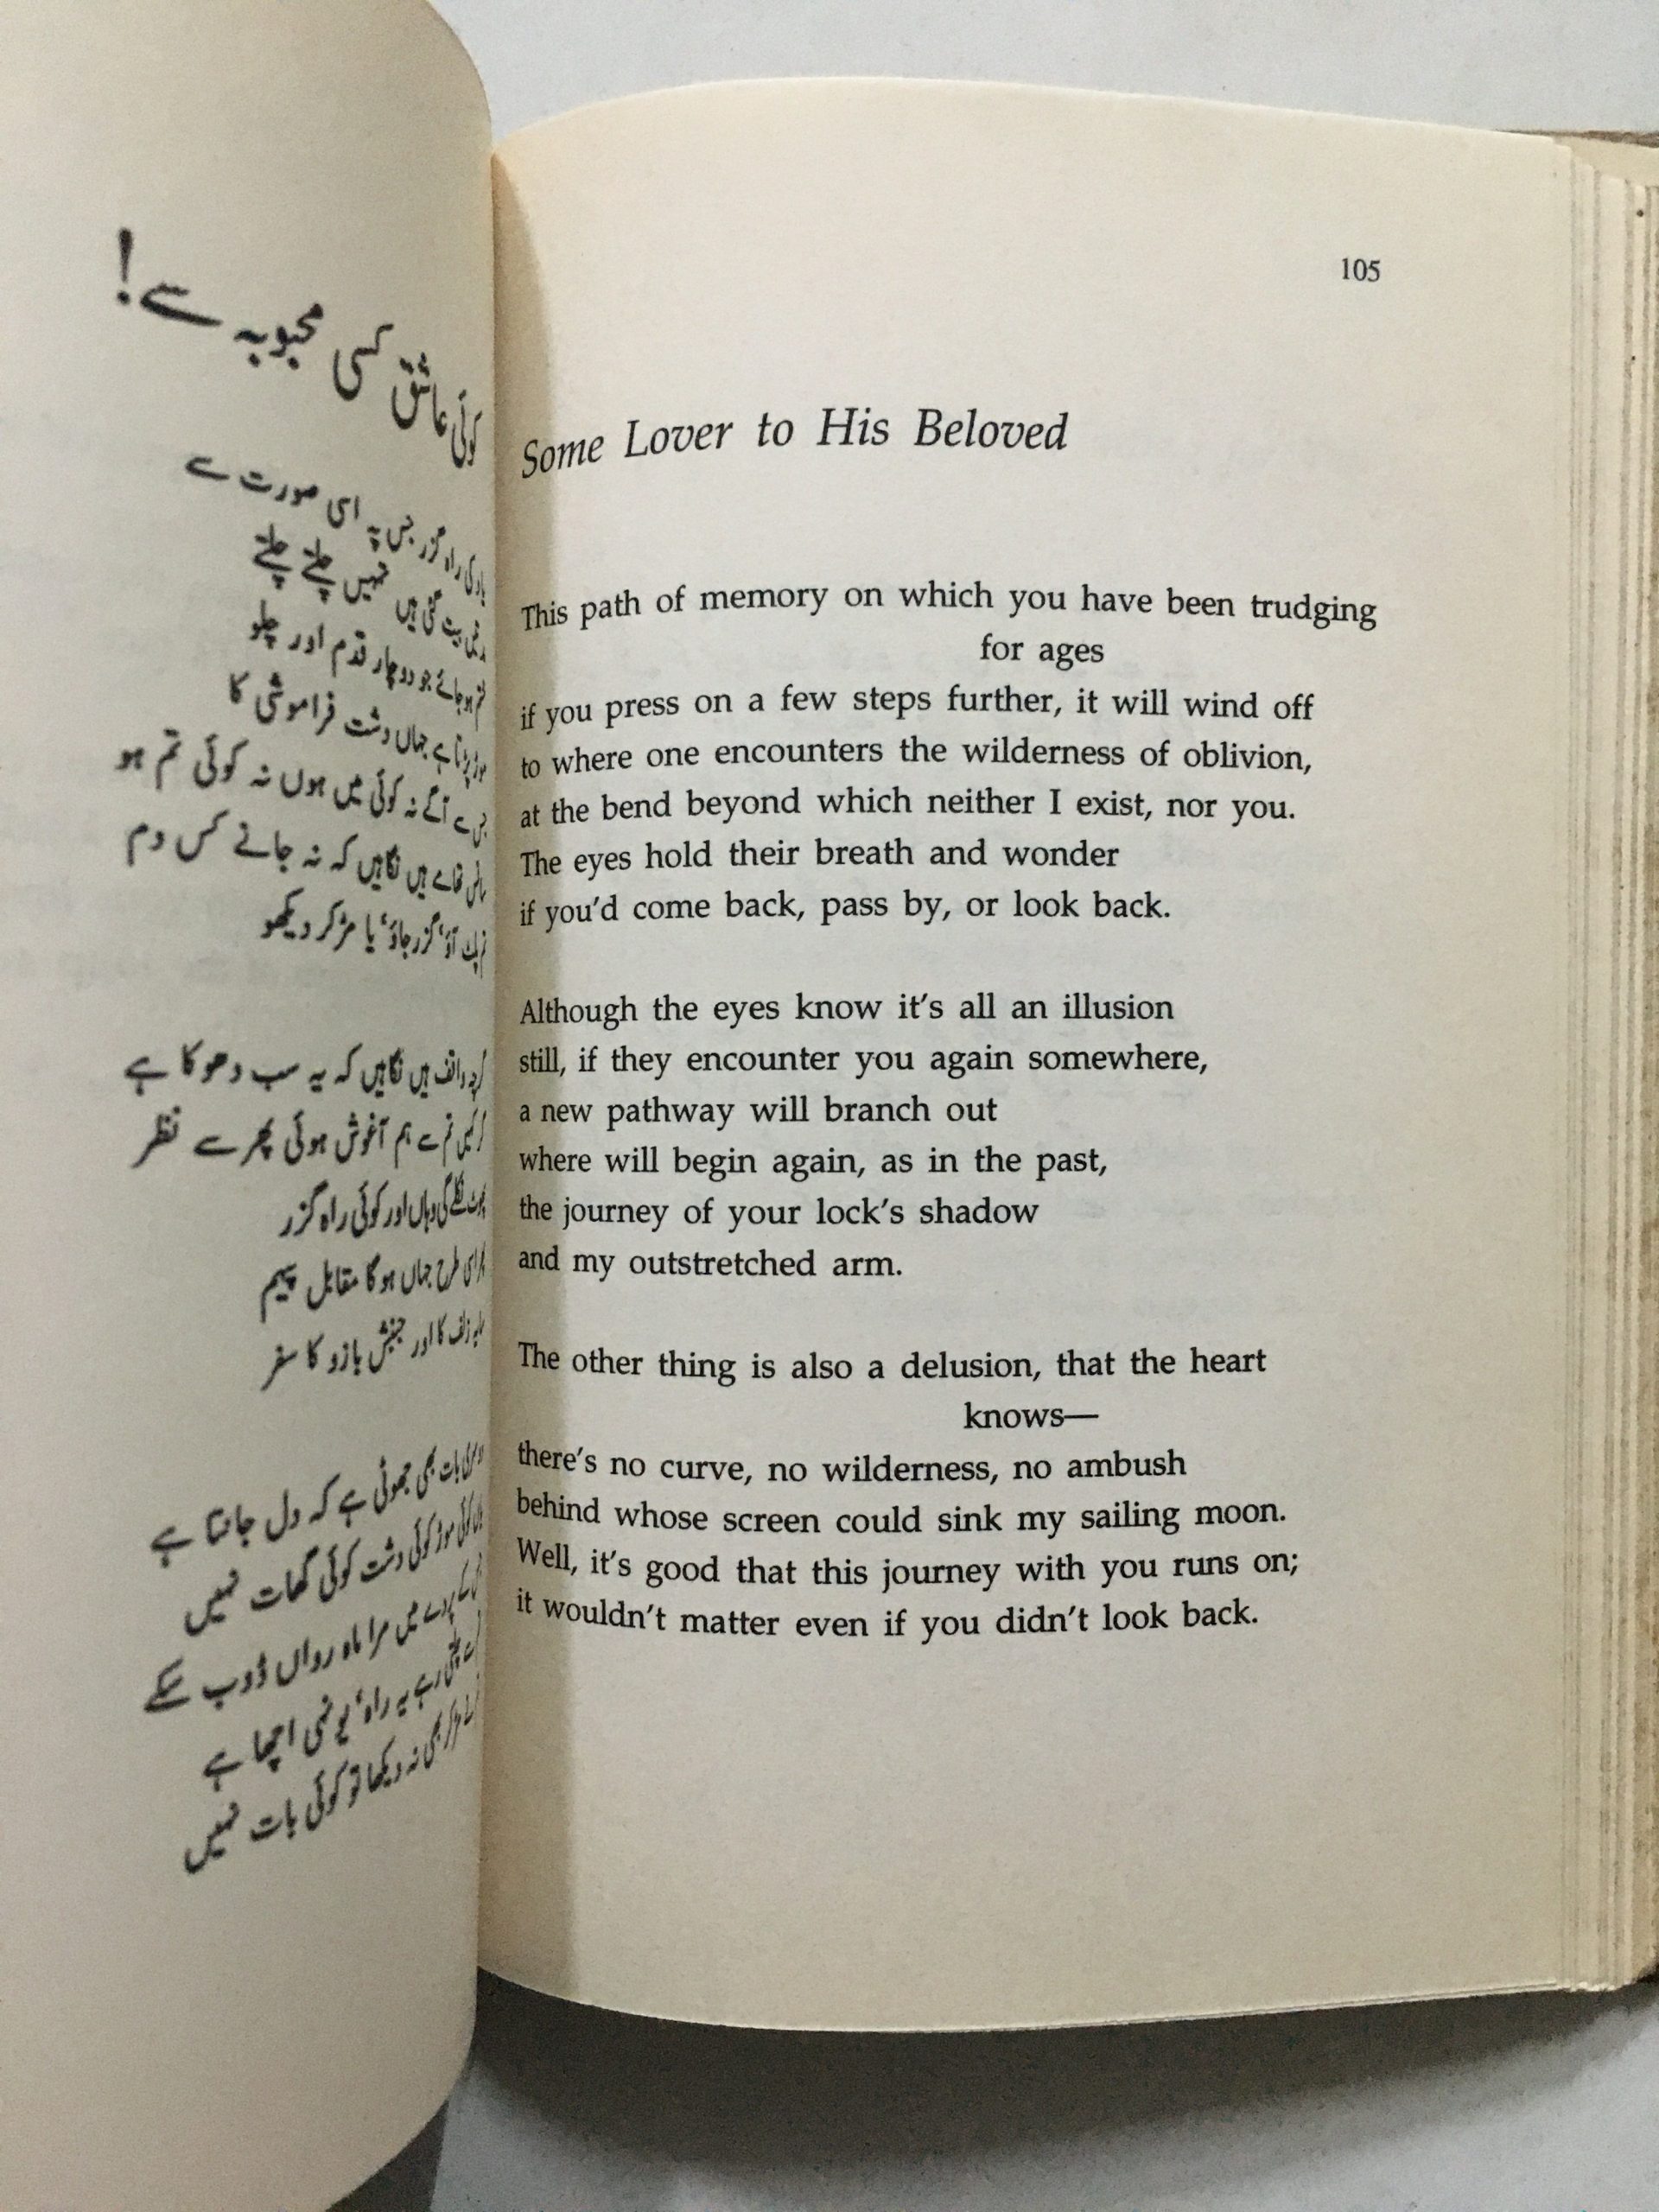 کوئی عاشق کسی محبوبہ سے!
یاد کی راہ گزر جس پہ اسی صورت سے
بیت گئی ہیں تمہیں چلتے چلتے
ختم ہو جائے جو دو چار قدم اور چلو
موڑ پڑتا ہے جہاں دشت فراموشی کا
جس سے آگے نہ کوئی میں ہوں نہ کوئی تم ہو
سانس تھامے ہیں نگاہیں کہ نہ جانے کس دم
تم پلٹ آؤ، گزر جاؤ، یا مڑ کر دیکھو
گرچہ واقف ہیں نگاہیں کہ یہ سب دھوکا ہے
گر کہیں تم سے ہم آغوش ہوئی پھر سے نظر
پھوٹ نکلے گی وہاں اور کوئی راہ گزر
پھر اسی طرح جہاں ہوگا مقابل پیہم
سایہ زلف کا اور جنبش بازو کا سفر
دوسری بات بھی جھوٹی ہے کہ دل جانتا ہے
یاں کوئی موڑ کوئی دشت کوئی گھات نہیں
جس کے پردے میں مرا ماہ رواں ڈوب سکے
تم سے چلتی رہے یہ راہ، یونہی اچھا ہے
تم نے مڑ کر بھی نہ دیکھا تو کوئی بات نہیں
105
Some Lover to His Beloved
This path of memory on which you have been trudging
for ages
if you press on a few steps further, it will wind off
to where one encounters the wilderness of oblivion,
at the bend beyond which neither I exist, nor you.
The eyes hold their breath and wonder
if you'd come back, pass by, or look back.
Although the eyes know it's all an illusion
still, if they encounter you again somewhere,
a new pathway will branch out
where will begin again, as in the past,
the journey of your lock's shadow
and my outstretched arm.
The other thing is also a delusion, that the heart
knows—
there's no curve, no wilderness, no ambush
behind whose screen could sink my sailing moon.
Well, it's good that this journey with you runs on;
it wouldn't matter even if you didn't look back.